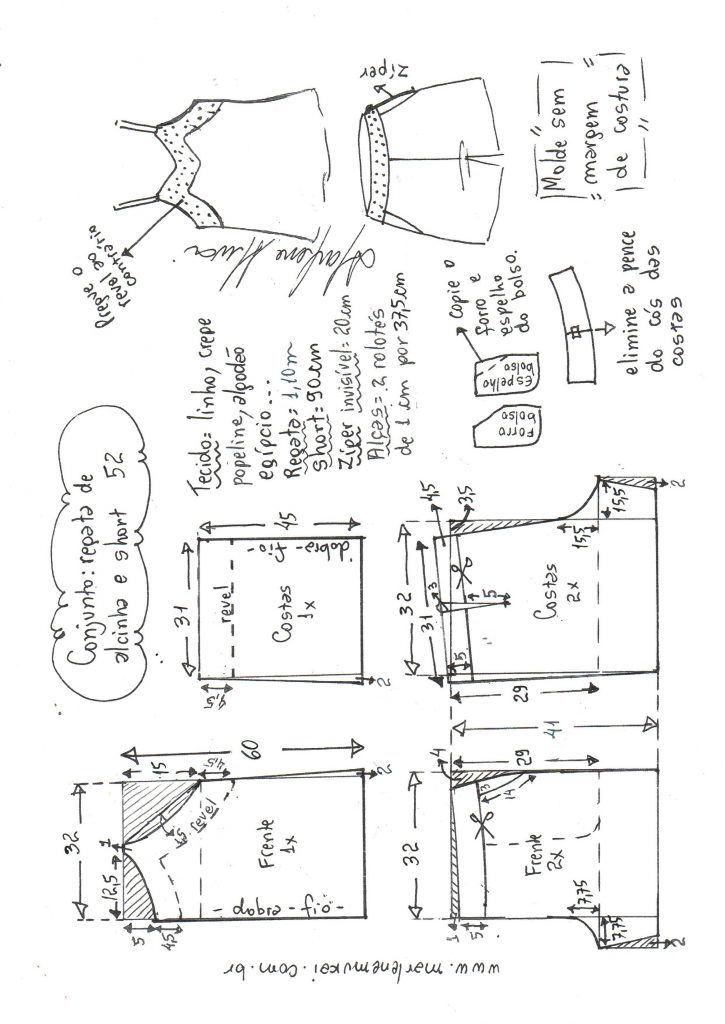 Conjunto: regata de
alcinha e short 52
Pregve o
revel ao
contrário
zíper
Molde sem
margem
de costura
Marlene Mukai
Tecido: linho, crepe
popeline, algodão
egípcio...
Regata: 1,10m
short: 90cm
Zíper invisível: 20cm
Alças = 2 rolotês
de 1 cm por 37,5cm
copie o
forro e
espelho
do bolso.
Espelho
bolso
Forro
bolso
elimine a pence
do cós das
costas
32
12,5
1
15
4,5
60
5
4,5
4,5
revel
Frente
1x
- o.if - ergap -
2
31
4,5
revel
45
Costas
1x
dobra - fio -
2
32
4
1
5
3
14
29
41
Frente
2x
7,75
7,75
2
32
31
4,5
3,5
3
5
5
29
Costas
2x
15,5
15,5
2
www.marlenemukai.com.br